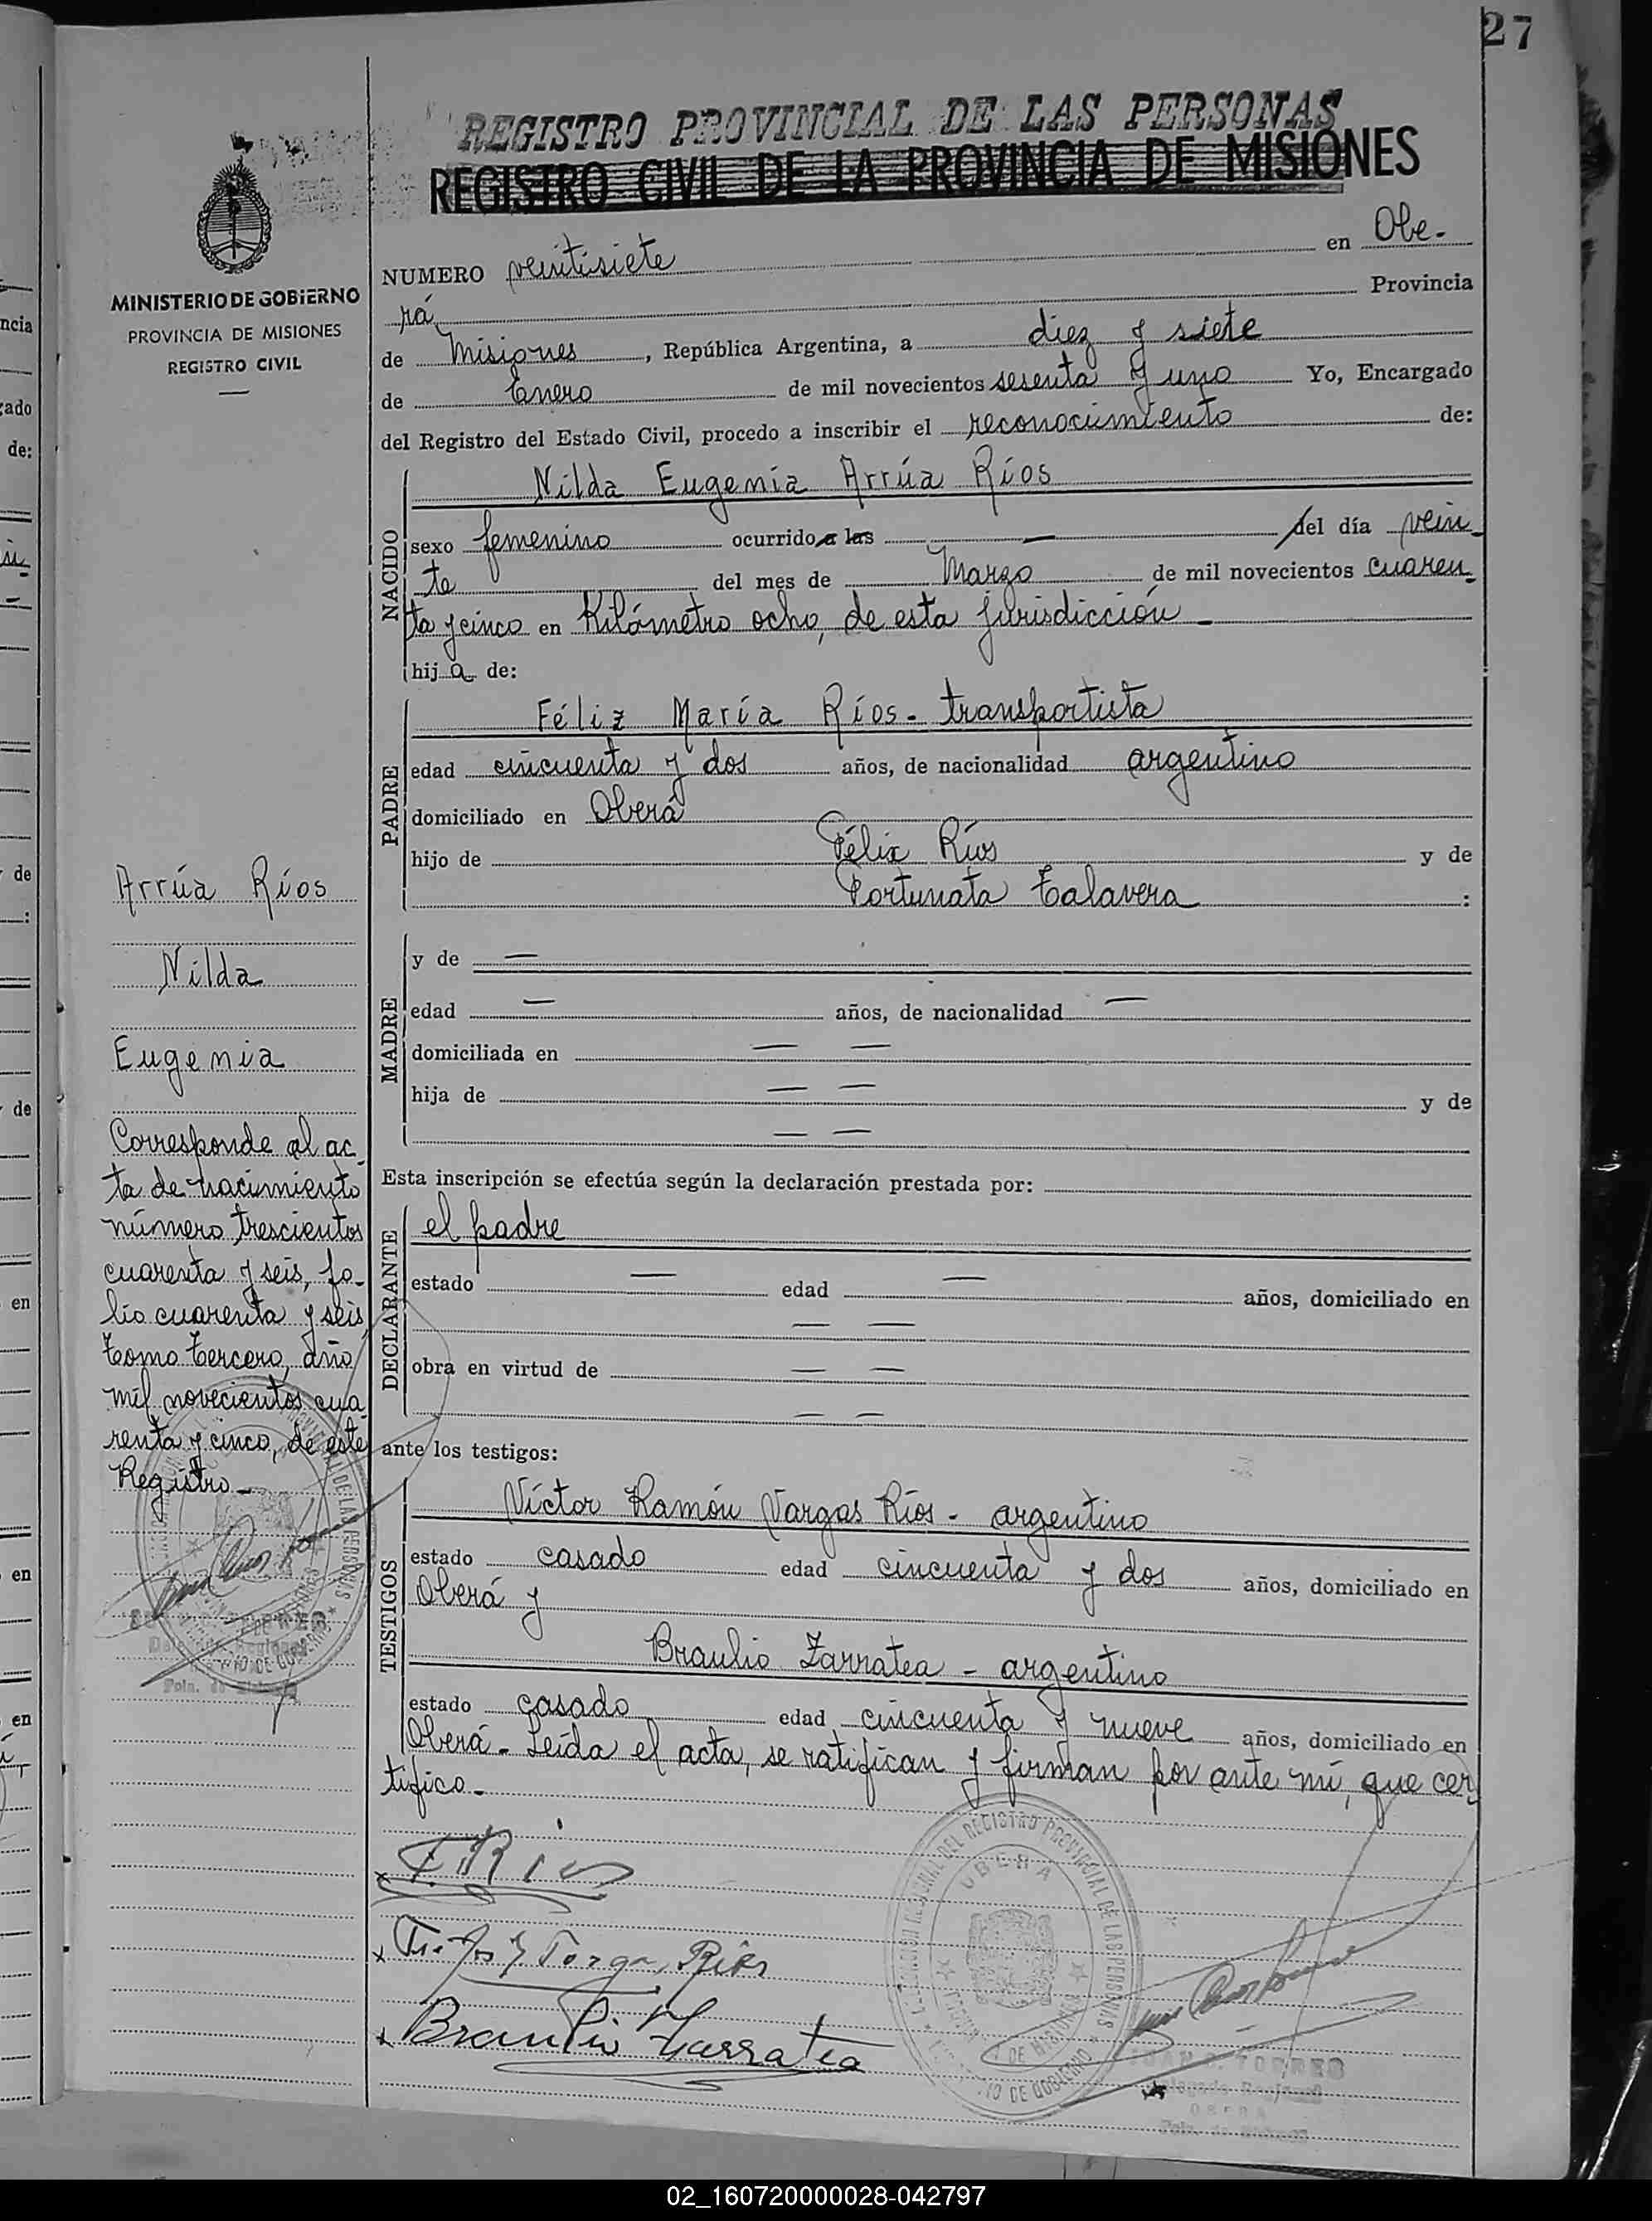 27
REGISTRO PROVINCIAL DE LAS PERSONAS
REGISTRO CIVIL DE LA PROVINCIA DE MISIONES
MINISTERIO DE GOBIERNO
PROVINCIA DE MISIONES
REGISTRO CIVIL
NUMERO veintisiete en Obe-
rá Provincia
de Misiones, República Argentina, a diez y siete
de Enero de mil novecientos sesenta y uno Yo, Encargado
del Registro del Estado Civil, procedo a inscribir el reconocimiento de:
NACIDO
Nilda Eugenia Arrúa Ríos
sexo femenino ocurrido a las — del día vein-
te del mes de Marzo de mil novecientos cuaren-
ta y cinco en Kilómetro ocho, de esta jurisdicción -
hija de:
PADRE
Féliz María Ríos - transportista
edad cincuenta y dos años, de nacionalidad argentino
domiciliado en Oberá
hijo de Félix Ríos y de
Fortunata Talavera :
MADRE
y de —
edad — años, de nacionalidad —
domiciliada en — —
hija de — — y de
— —
Esta inscripción se efectúa según la declaración prestada por:
DECLARANTE
el padre
estado — edad — años, domiciliado en
— —
obra en virtud de — —
— —
ante los testigos:
TESTIGOS
Víctor Ramón Vargas Ríos - argentino
estado casado edad cincuenta y dos años, domiciliado en
Oberá y
Braulio Zarratea - argentino
estado casado edad cincuenta y nueve años, domiciliado en
Oberá - Leída el acta, se ratifican y firman por ante mí, que cer-
tifico -
Arrúa Ríos
Nilda
Eugenia
Corresponde al ac-
ta de nacimiento
número trescientos
cuarenta y seis, fo-
lio cuarenta y seis
Tomo tercero, año
mil novecientos cua-
renta y cinco, de este
Registro -
F. Rios
Braulio Zarratea
DEL REGISTRO PROVINCIAL DE LAS PERSONAS
OBERA
TORRES
02_160720000028-042797